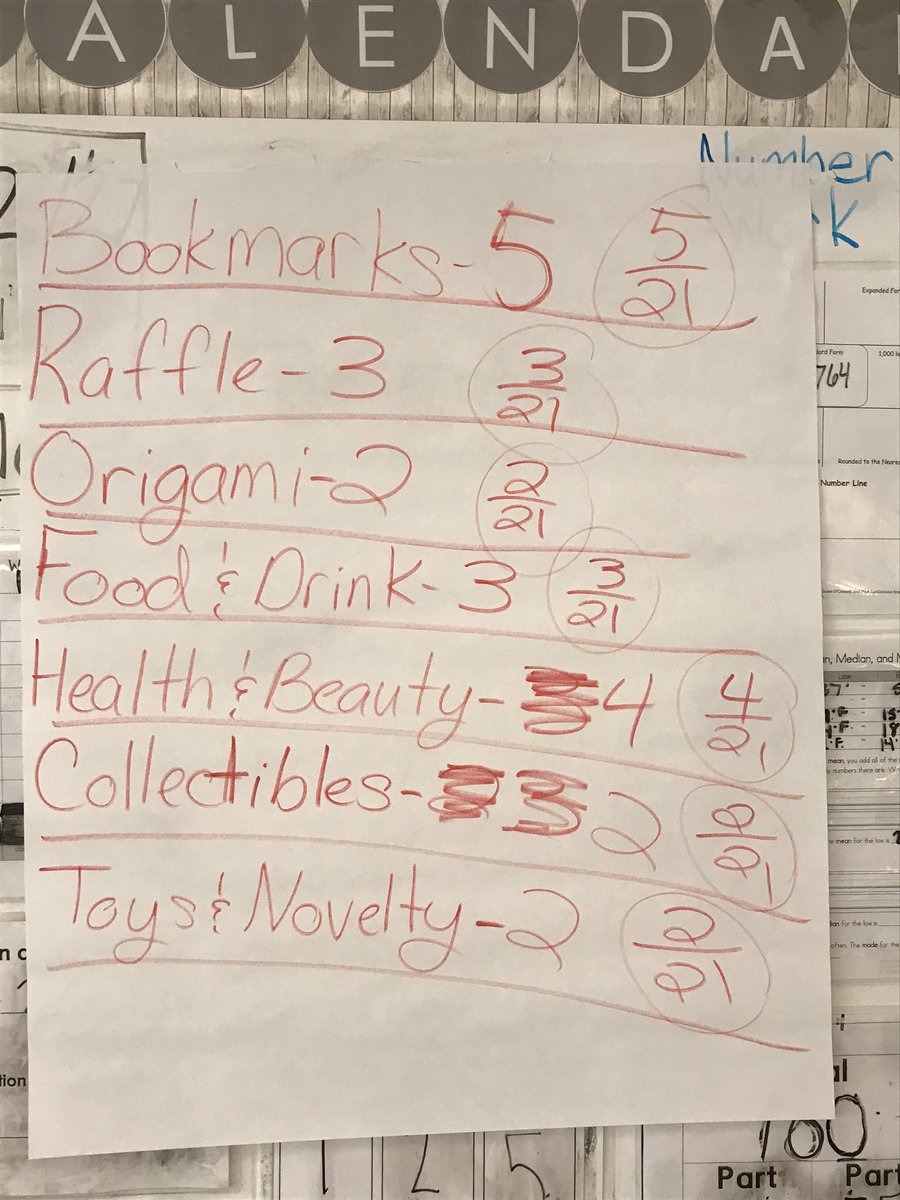 ALENDA
Number
Bookmarks-5 5/21
Raffle-3 3/21
Origami-2 2/21
Food & Drink-3 3/21
Health & Beauty-4 4/21
Collectibles-2 2/21
Toys & Novelty-2 2/21
Expanded For
dard Form 1,000 le
764
Rounded to the Neares
Number Line
n, Median, and M
mean, you add all of the
y numbers there are.
e mean for the low is
dian for the low is
often. The mode for the
160
Part Part
1 2 5